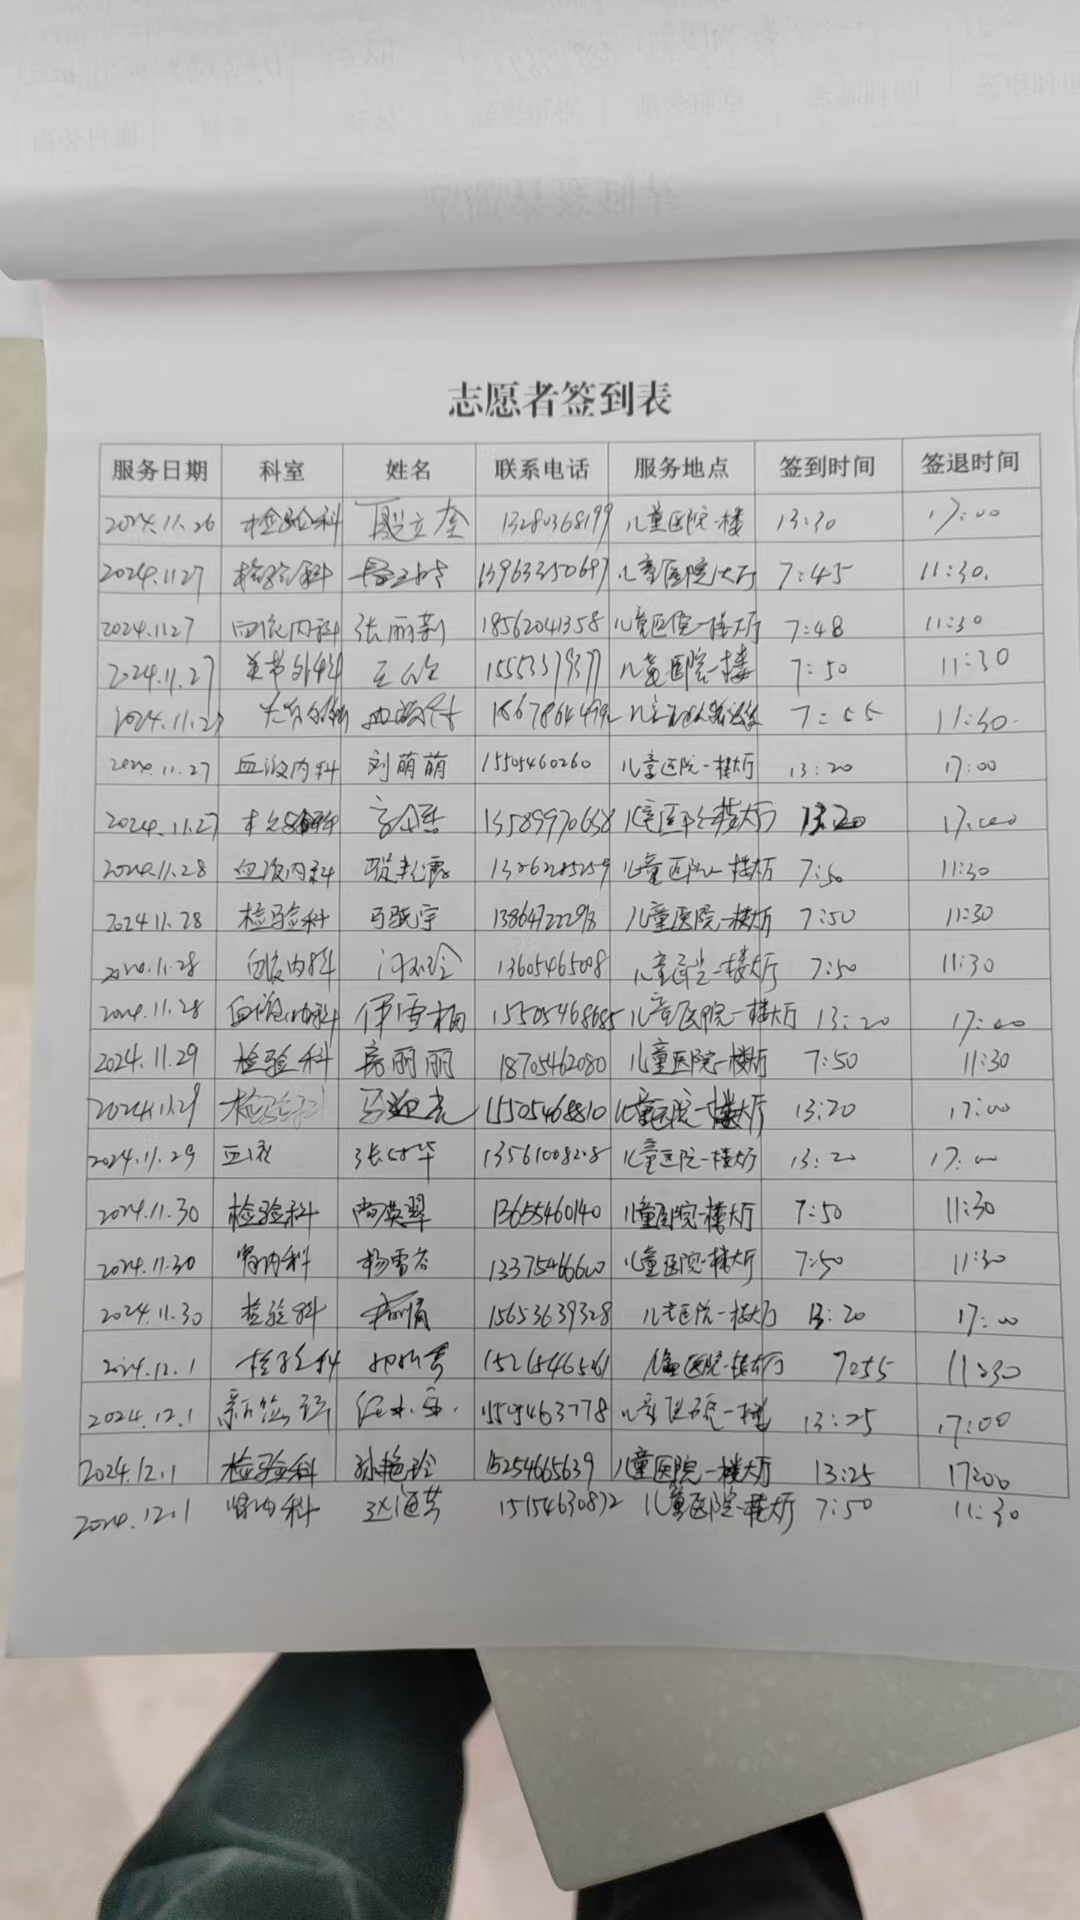 志愿者签到表
服务日期 科室 姓名 联系电话 服务地点 签到时间 签退时间
2024.11.26 检验科 立奎 13280368199 儿童医院一楼 13:30 17:00
2024.11.27 检验科 13963350697 儿童医院大厅 7:45 11:30.
2024.11.27 血液内科 张丽莉 18562041358 儿童医院一楼大厅 7:48 11:30
2024.11.27 外科 王 15553379377 儿童医院一楼 7:50 11:30
2024.11.27 7:55 11:30
2024.11.27 血液内科 刘萌萌 15505460260 儿童医院一楼大厅 13:20 17:00
2024.11.27 13589970638 儿童医院一楼大厅 13:20 17:00
2024.11.28 血液内科 儿童医院一楼大厅 7:50 11:30
2024.11.28 检验科 儿童医院一楼大厅 7:50 11:30
2024.11.28 血液内科 13605465008 儿童医院一楼大厅 7:50 11:30
2024.11.28 血液内科 伊雪梅 15505468685 儿童医院一楼大厅 13:20 17:00
2024.11.29 检验科 房丽丽 18705462080 儿童医院一楼大厅 7:50 11:30
2024.11.29 检验科 15505468810 儿童医院一楼大厅 13:20 17:00
2024.11.29 血液 张 华 13561008208 儿童医院一楼大厅 13:20 17:00
2024.11.30 检验科 尚英翠 13655460140 儿童医院一楼大厅 7:50 11:30
2024.11.30 肾内科 杨雪 13375466600 儿童医院一楼大厅 7:50 11:30
2024.11.30 检验科 15653639328 儿童医院一楼大厅 13:20 17:00
2024.12.1 检验科 儿童医院一楼大厅 7:55 11:30
2024.12.1 儿童医院一楼 13:25 17:00
2024.12.1 检验科 孙艳玲 15254665639 儿童医院一楼大厅 13:25 17:00
2024.12.1 肾内科 15154630872 儿童医院一楼大厅 7:50 11:30